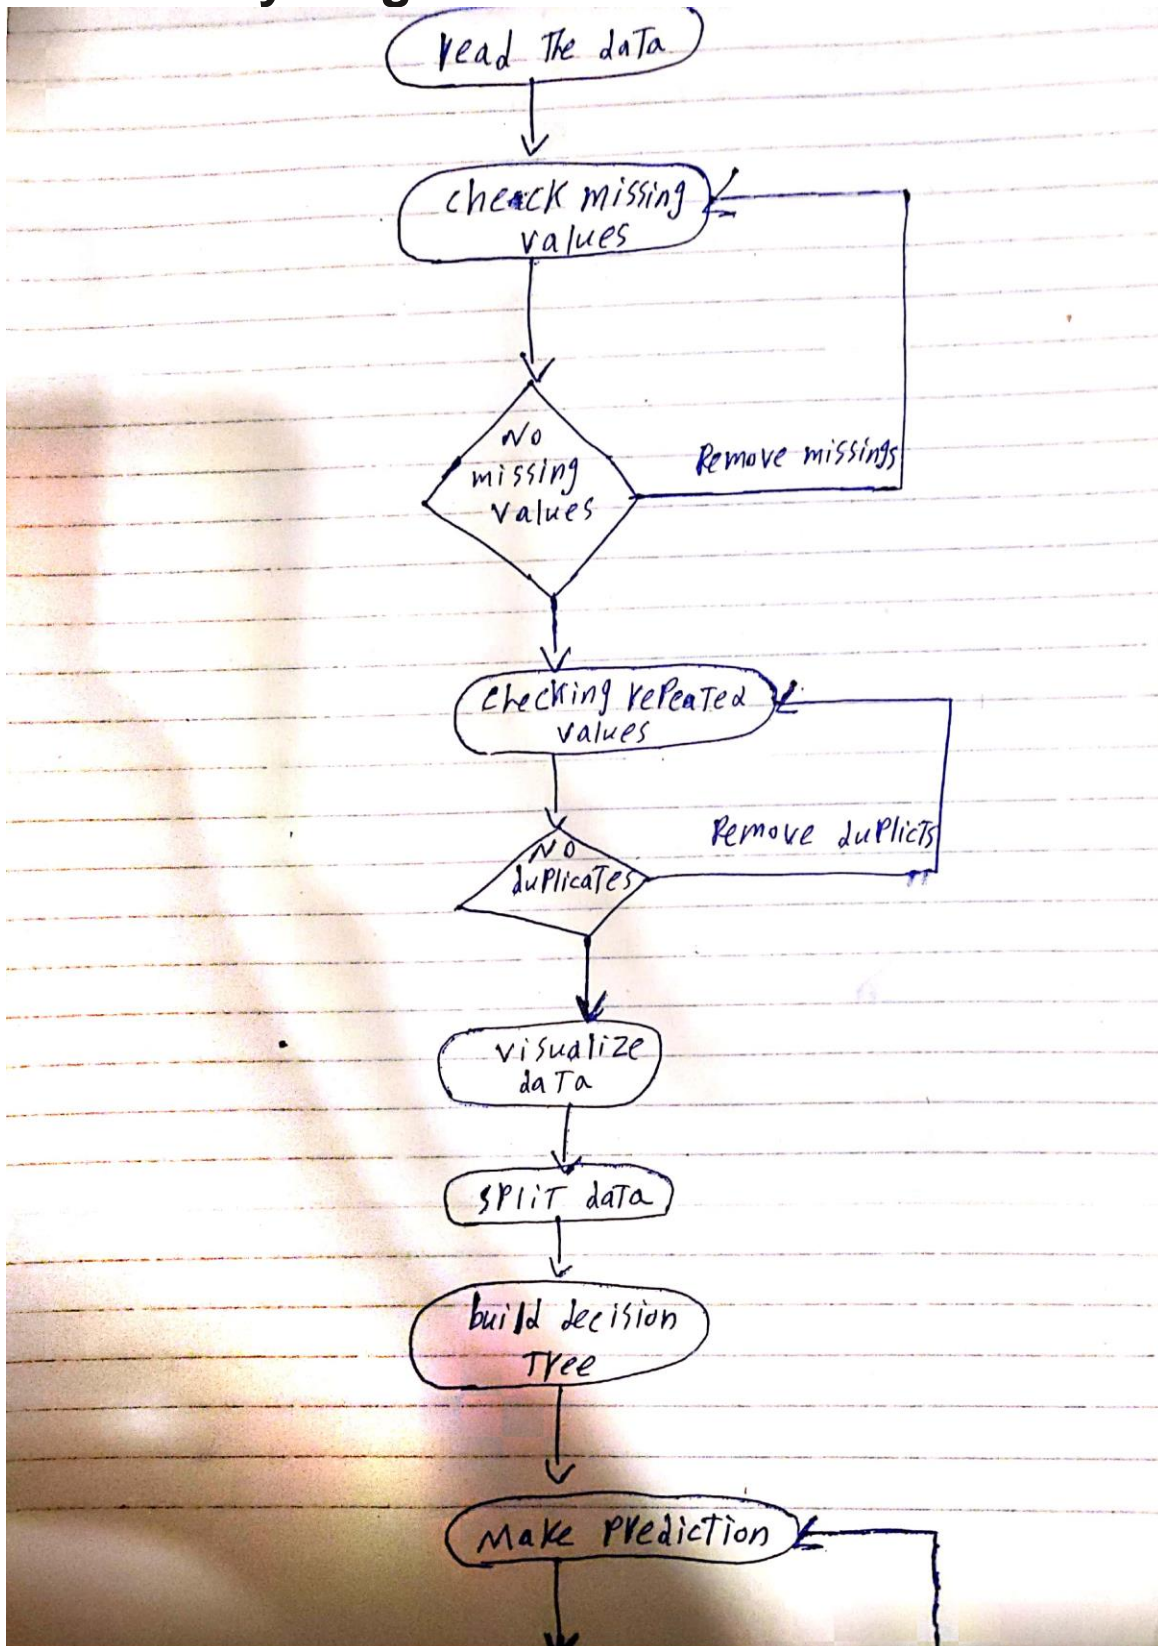 read The daTa
check missing
values
No
missing
values
Remove missings
checking rePeaTed
values
NO
duPlicaTes
Remove duPlicTs
visualize
daTa
SPliT daTa
build decision
Tree
Make PredicTion